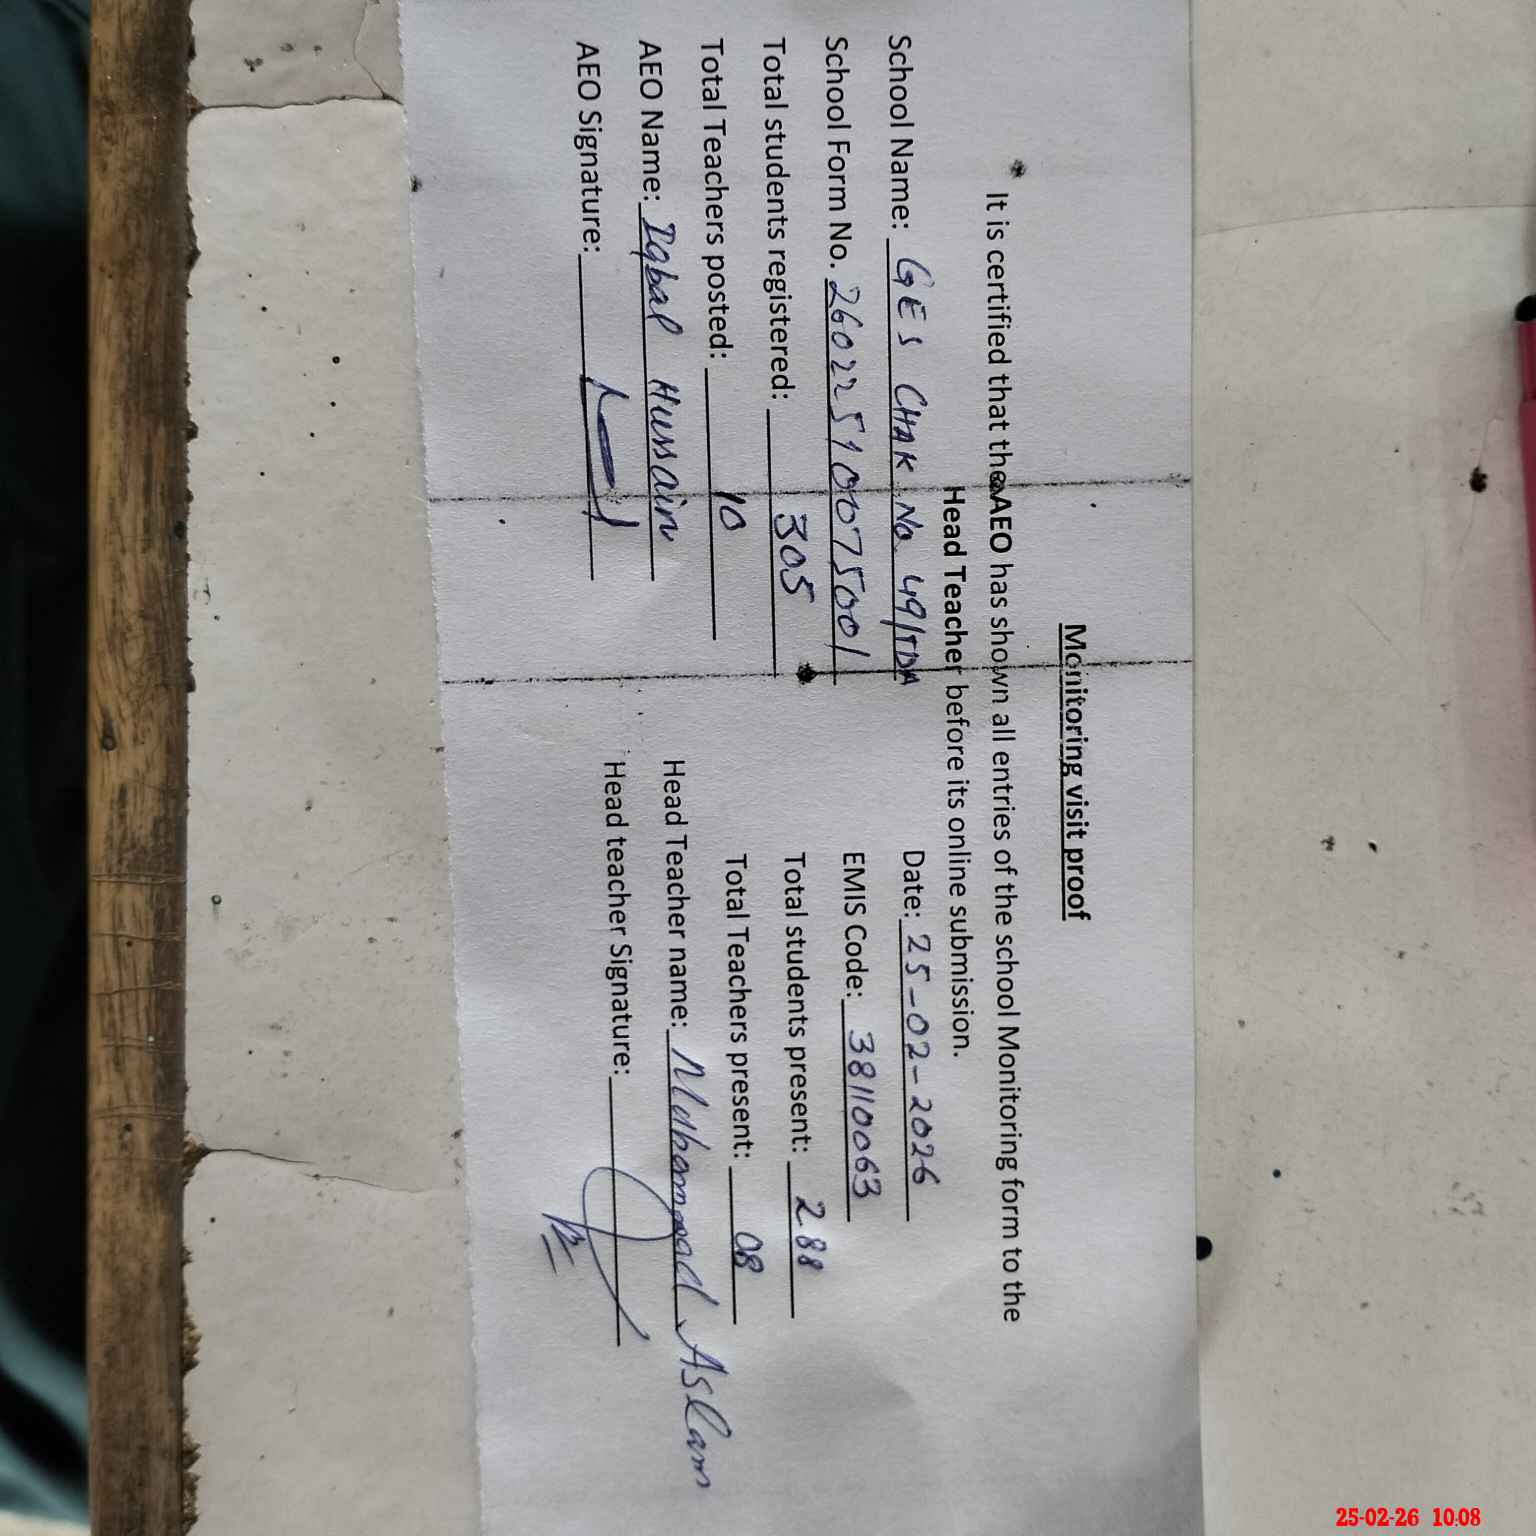 Monitoring visit proof
It is certified that the AEO has shown all entries of the school Monitoring form to the
Head Teacher before its online submission.
School Name: GES CHAK No. 49/TDA Date: 25-02-2026
School Form No. 26022510075001 EMIS Code: 38110063
Total students registered: 305 Total students present: 288
Total Teachers posted: 10 Total Teachers present: 08
AEO Name: Iqbal Hussain Head Teacher name: Mohammad Aslam
AEO Signature: Head teacher Signature:
25-02-26 10:08